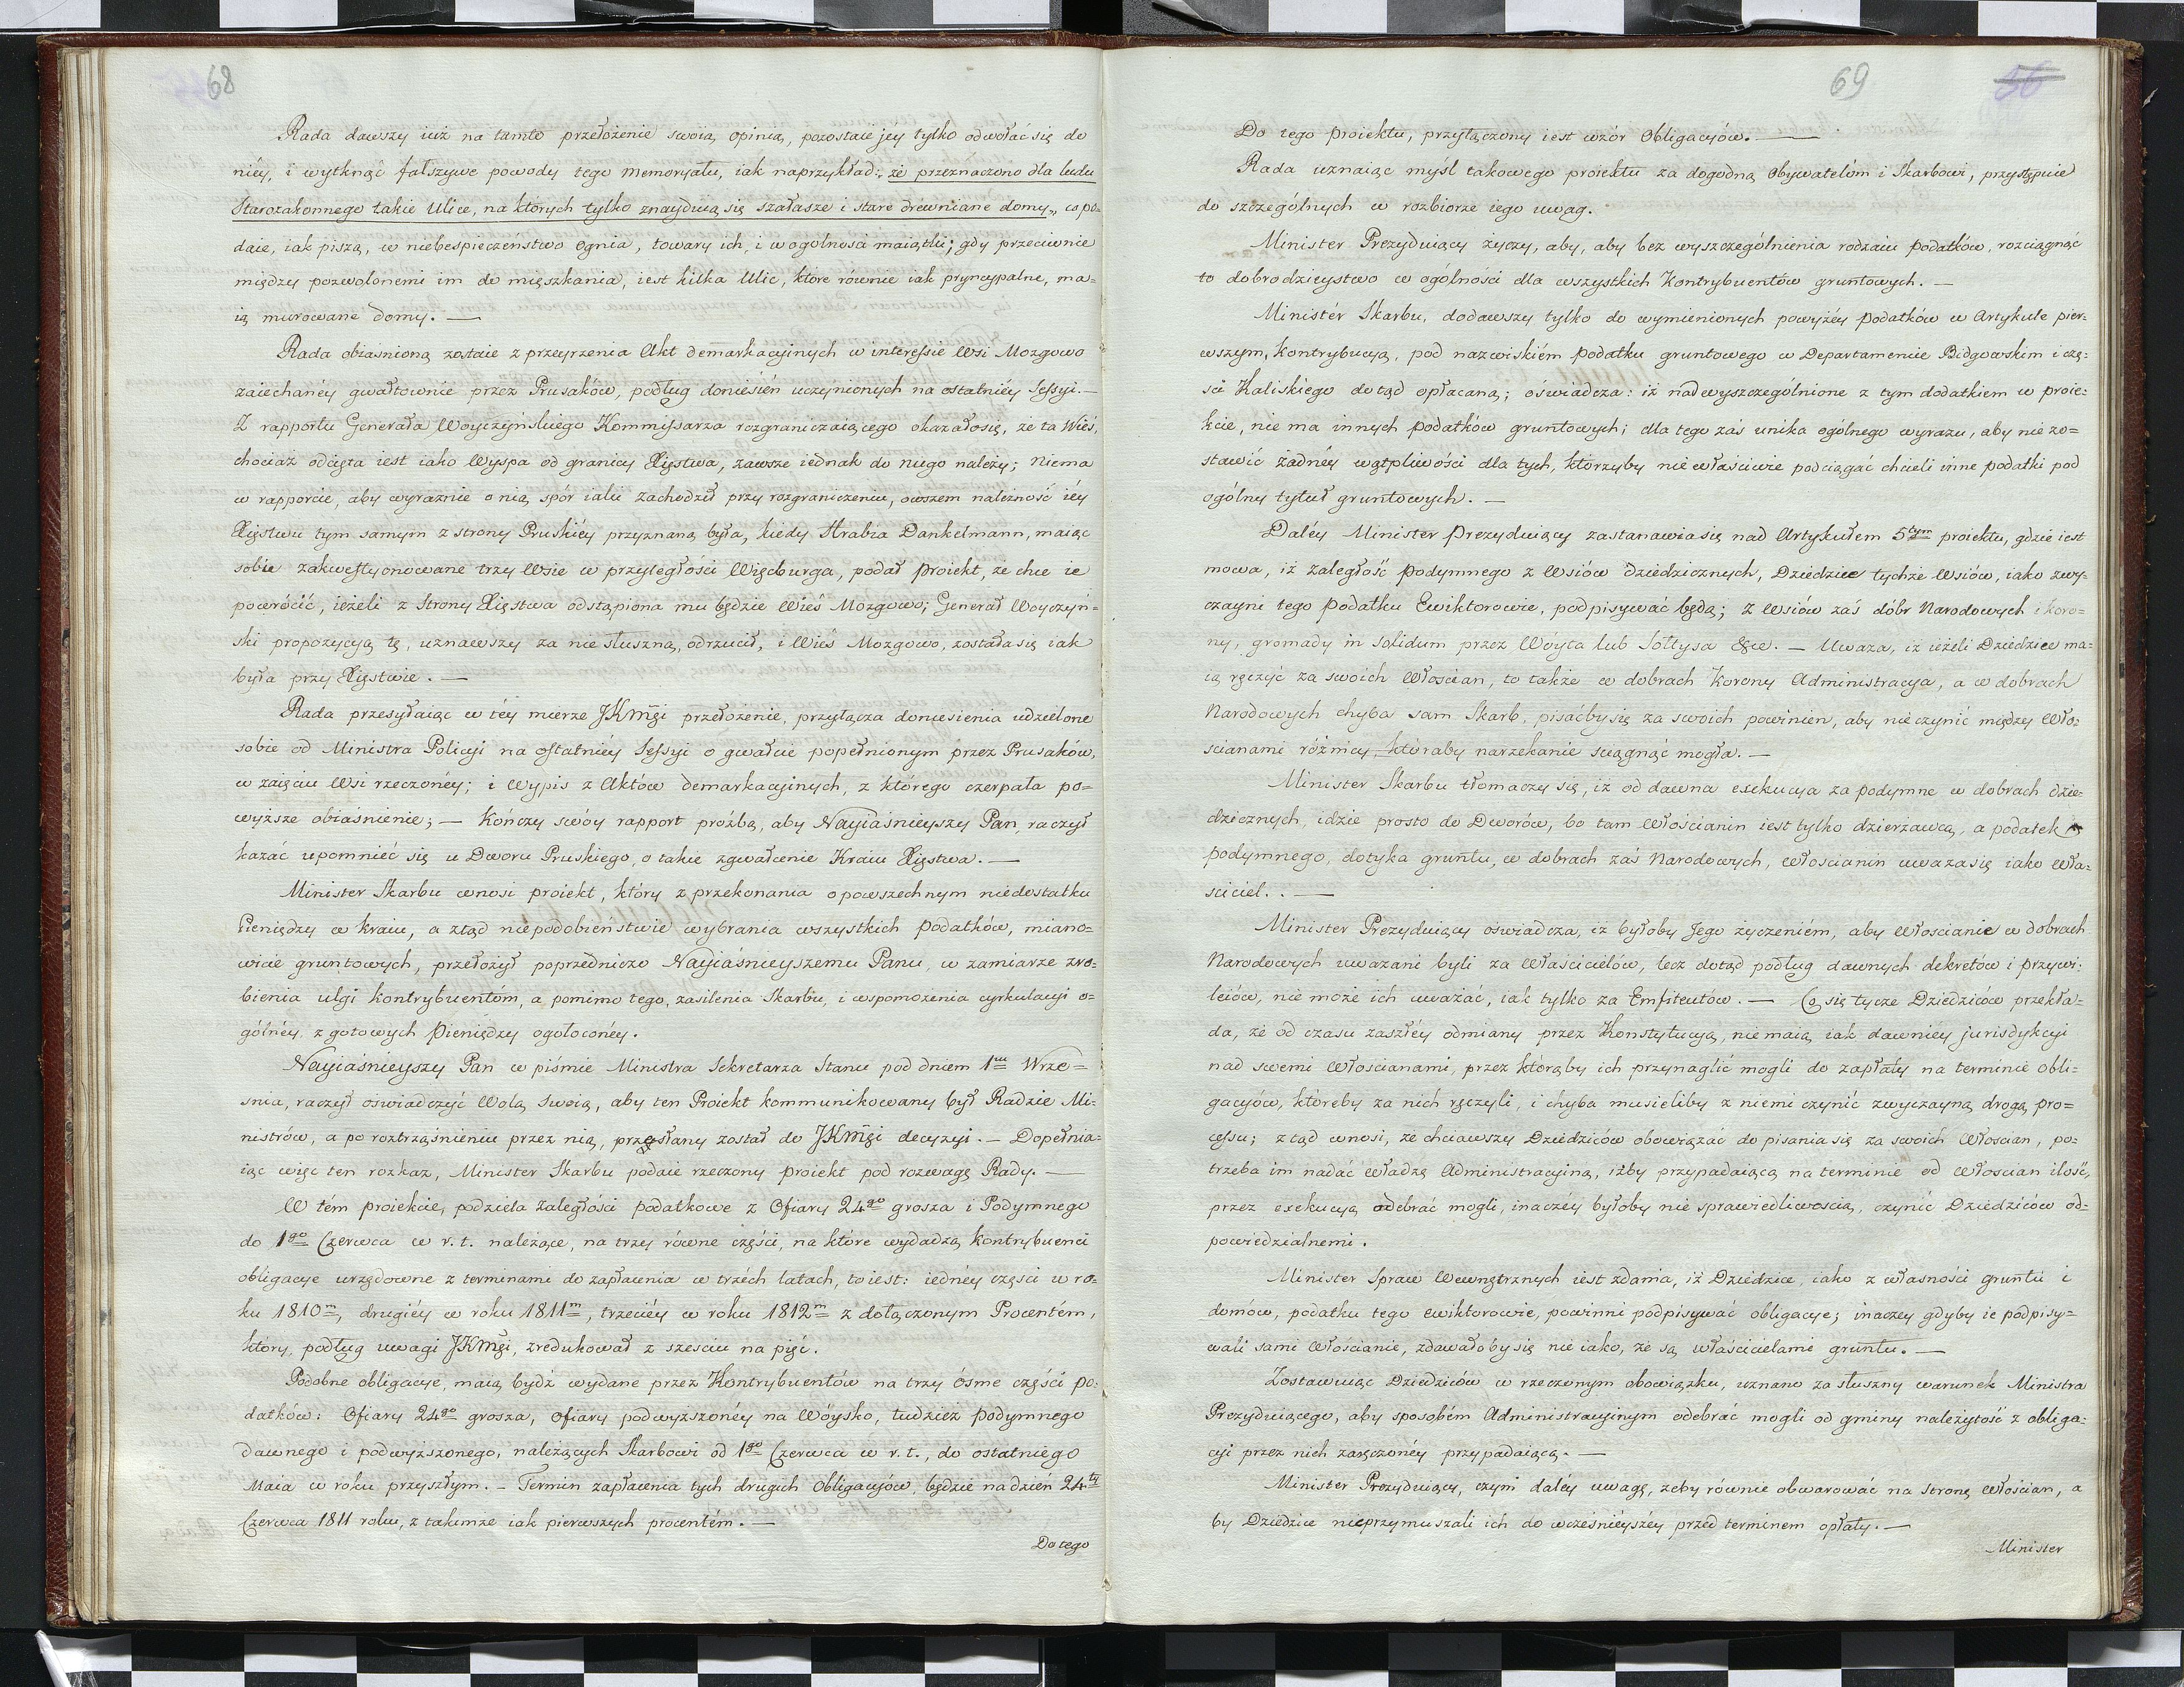 68
Rada dawszy iuż na tamto przełożenie swoią opinią, pozostaie jey tylko odwołać się do
niéy, i wytknąć fałszywe powody tego memoryału, iak naprzykład: „że przeznaczono dla ludu
Starozakonnego takie Ulice, na których tylko znayduią się szałasze i stare drewniane domy„, co po=
daie, iak piszą, w niebespieczeństwo ognia, towary ich, i w ogólności maiątki; gdy przeciwnie
między pozwolonemi im do mięszkania, iest kilka Ulic, które równie iak pryncypalne, ma=
ią murowane domy. —
Rada obiaśnioną zostaie z przeyrzenia Akt demarkacyinych w interessie Wsi Mozgowo
zaiechanéy gwałtownie przez Prusaków, podług doniesień uczynionych na ostatniéy Sessyi. —
Z rapportu Generała Woyczyńskiego Kommissarza rozgraniczaiącego okazałosię, że ta Wieś,
chociaż odcięta iest iako Wyspa od granicy Xięstwa, zawsze iednak do niego należy; niema
w rapporcie, aby wyraznie o nią spór iaki zachodził przy rozgraniczeniu, owszem należność iéy
Xięstwu tym samym z strony Pruskiéy przyznaną była, kiedy Hrabia Dankelmann, maiąc
sobie zakwestyonowane trzy Wsie w przyległości Więcburga, podał proiekt, że chce ie
powrócić, ieżeli z Strony Xięstwa odstąpiona mu będzie Wieś Mozgowo; Generał Woyczyń=
ski propozycyą tę, uznawszy za nie słuszną, odrzucił, i Wieś Mozgowo, zostałasię iak
była przy Xięstwie. —
Rada przesyłaiąc w téy mierze JKMci przełożenie, przyłącza doniesienia udzielone
sobie od Ministra Policyi na ostatniéy Sessyi o gwałcie popełnionym przez Prusaków,
w zaięciu Wsi rzeczonéy; i Wypis z Aktów demarkacyinych, z którego czerpała po=
wyższe obiaśnienie; — Kończy swóy rapport proźbą, aby Nayiaśnieyszy Pan, raczył
kazać upomnieć się u Dworu Pruskiego, o takie zgwałcenie Kraiu Xięstwa. —
Minister Skarbu wnosi proiekt, który z przekonania o powszechnym niedostatku
Pieniędzy w kraiu, a ztąd niepodobieństwie wybrania wszystkich podatków, miano=
wicie gruntowych, przełożył poprzedniczo Nayiaśnieyszemu Panu, w zamiarze zro=
bienia ulgi kontrybuentóm, a pomimo tego, zasilenia Skarbu, i wspomożenia cyrkulacyi o=
gólnéy, z gotowych pieniędzy ogołoconéy.
Nayiaśnieyszy Pan w piśmie Ministra Sekretarza Stanu pod dniem 1m Wrze=
śnia, raczył oświadczyć Wolą swoią, aby ten Proiekt kommunikowany był Radzie Mi=
nistrów, a po roztrząśnieniu przez nią, przesłany został do JKMci decyzyi. — Dopełnia=
iąc więc ten rozkaz, Minister Skarbu podaie rzeczony proiekt pod rozwagę Rady. —
W tém proiekcie, podziela zaległości podatkowe z Ofiary 24go grosza i Podymnego
do 1go Czerwca w r. t. należące, na trzy równe części, na które wydadzą kontrybuenci
obligacye urzędowne z terminami do zapłacenia w trzéch latach, toiest: iednéy części w ro=
ku 1810m, drugiéy w roku 1811m, trzeciéy w roku 1812m z dołączonym Procentém,
który, podług uwagi JKMci, zredukował z sześciu na pięć.
Podobne obligacye, maią bydź wydane przez Kontrybuentów na trzy ósme części po=
datków: Ofiary 24go grosza, Ofiary podwyższonéy na Wóysko, tudzież podymnego
dawnego i podwyższonego, należących Skarbowi od 1go Czerwca w r. t., do ostatniego
Maia w roku przyszłym. — Termin zapłacenia tych drugich Obligacyów, będzie na dzień 24ty
Czerwca 1811 roku, z takimże iak pierwszych procentém. —
Do tego
69
36
Do tego proiektu, przyłączony iest wzór Obligacyów. —
Rada uznaiąc myśl takowego proiektu za dogodną Obywatelóm i Skarbowi, przystępuie
do szczególnych w rozbiorze iego uwag.
Minister Prezyduiący życzy, aby, aby bez wyszczególnienia rodzaiu podatków, rozciągnąć
to dobrodzieystwo w ogólności dla wszystkich Kontrybuentów gruntowych. —
Ministér Skarbu, dodawszy tylko do wymienionych powyżéy podatków w Artykule pier=
wszym, kontrybucyą, pod nazwiskiém podatku gruntowego w Departamencie Bidgowskim i czę=
ści Kaliskiego dotąd opłacaną; oświadcza: iż nad wyszczególnione z tym dodatkiem w proie=
kcie, nie ma innych podatków gruntowych; dla tego zaś unika ogólnego wyrazu, aby nie zo=
stawić żadnéy wątpliwości dla tych, którzyby niewłaściwie podciągać chcieli inne podatki pod
ogólny tytuł gruntowych. —
Daléy Minister Prezyduiący zastanawiasię nad Artykułem 5tym proiektu, gdzie iest
mowa, iż zaległość podymnego z Wsiów dziedzicznych, Dziedzice tychże Wsiów, iako zwy=
czayni tego podatku Ewiktorowie, podpisywać będą; z Wsiów zaś dóbr Narodowych i koro=
ny, gromady in solidum przez Wóyta lub Sołtysa &ce. — Uważa, iż ieżeli Dziedzice ma=
ią ręczyć za swoich Włościan, to także w dobrach Korony Administracya, a w dobrach
Narodowych chyba sam Skarb, pisaćbysię za swoich powinien, aby nie czynić między Wło=
ścianami różnicy, któraby narzekanie sciągnąć mogła. —
Minister Skarbu tłomaczy się, iż od dawna exekucya za podymne w dobrach dzie=
dzicznych, idzie prosto do Dworów, bo tam Włościanin iest tylko dzierżawcą, a podatek
podymnego, dotyka gruntu, w dobrach zaś Narodowych, Włościanin uważasię iako Wła=
ściciel. —
Minister Prezyduiący oświadcza, iż byłoby Jego życzeniém, aby Włościanie w dobrach
Narodowych uważani byli za Właścicielów, lecz dotąd podług dawnych dekretów i przywi=
leiów, nie może ich uważać, iak tylko za Emfiteutów. — Co się tycze Dziedziców przekła=
da, że od czasu zaszłéy odmiany przez Konstytucyą, nie maią iak dawniéy jurisdykcyi
nad swemi Włościanami, przez którąby ich przynaglić mogli do zapłaty na terminie obli=
gacyów, któreby za nich ręczyli, i chyba musieliby z niemi czynić zwyczayną drogą pro=
cessu; ztąd wnosi, że chciawszy Dziedziców obowiązać do pisania się za swoich Włościan, po=
trzeba im nadać władzą Administracyiną, iżby przypadaiącą na terminie od Włościan ilość,
przez exekucyą odebrać mogli, inaczéy byłoby nie sprawiedliwością, czynić Dziedziców od=
powiedzialnemi.
Minister Spraw Wewnętrznych iest zdania, iż Dziedzice, iako z własności gruntu i
domów, podatku tego ewiktorowie, powinni podpisywać obligacye; inaczey gdyby ie podpisy=
wali sami Włościanie, zdawałobysię nie iako, że są właścicielami gruntu. —
Zostawuiąc Dziedziców w rzeczonym obowiązku, uznano za słuszny warunek Ministra
Prezyduiącego, aby sposobém Administracyinym odebrać mogli od gminy należytość z obliga=
cyi przez nich zaręczonéy przypadaiącą. —
Minister Prezyduiący, czyni daléy uwagę, żeby równie obwarować na stronę Włościan, a=
by Dziedzice nieprzymuszali ich do wcześnieyszéy przed terminem opłaty. —
Minister